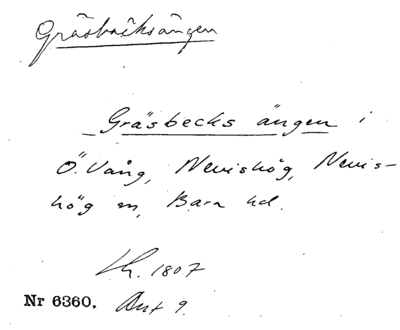 Gräsbäcksängen
Gräsbecks ängen i
Ö. Vång, Nevishög, Nevis-
hög sn, Bara hd.
Lh. 1807
Nr 6360. Akt 9.